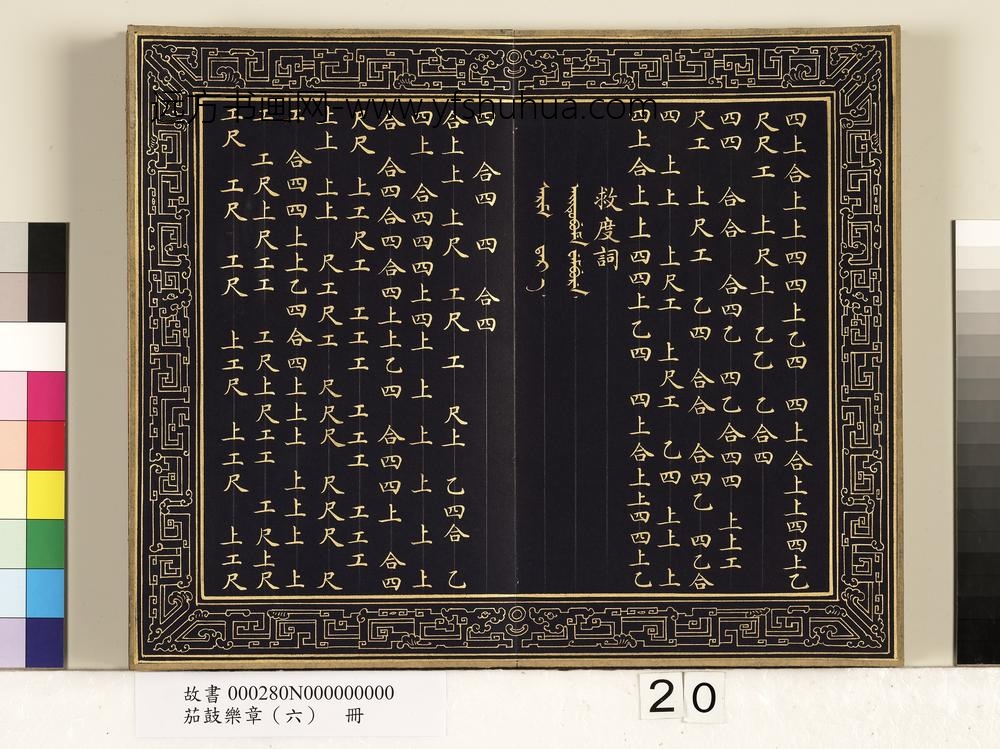 四上合上上四四上乙四 四上合上上四四上乙
尺尺工 上尺上 乙乙 乙合四
四四 合合 合四乙 四乙合四四 上上工
尺工 上尺工 乙四 合合 合四乙 四乙合
四 上上 上尺工 上尺工 乙四 上上 上
四上合上上四四上乙四 四上合上上四四上乙
救度詞
四 合四 四 合四
合上上 上尺 工尺 工 尺上 乙四合 乙
四上 合四四四上四上 上 上 上 上 上
合 合四合四合四上上乙四 合四四上 合四
尺尺 上工尺工 工工工 工工工 工工工
上上 上上 尺工尺工 尺尺尺 尺尺尺 尺
合四四上上乙四合四上上上 上上上 上
工尺上尺工工 工尺上尺工工 工尺上尺
工尺 工尺 工尺 上工尺 上工尺 上工尺
方书画网-www.yfshuhua.com
故書 000280N000000000
茄鼓樂章（六） 冊
20